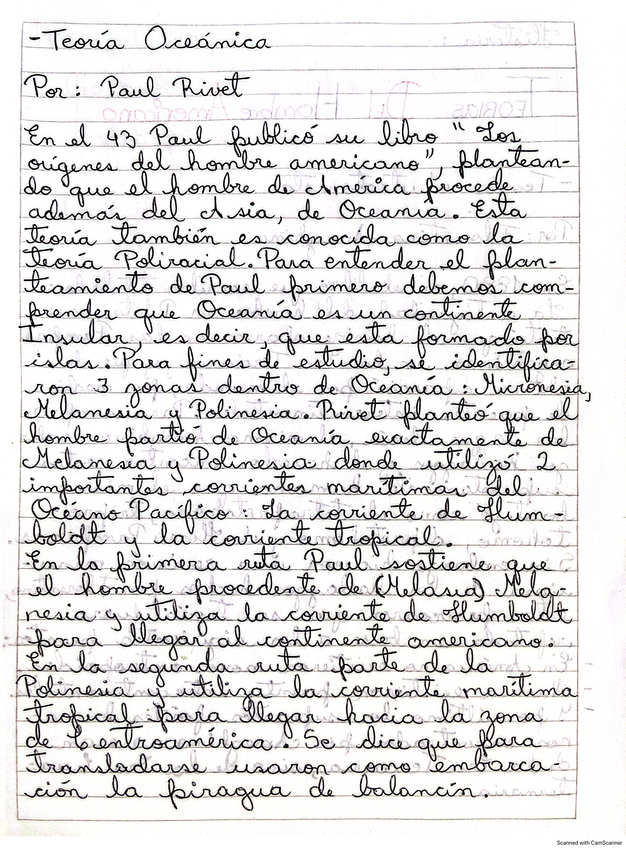 -Teoría Oceánica
Por: Paul Rivet
En el 43 Paul publicó su libro "Los
orígenes del hombre americano", plantean-
do que el hombre de América procede
además del Asia, de Oceanía. Esta
teoría también es conocida como la
teoría Poliracial. Para entender el plan-
teamiento de Paul primero debemos com-
prender que Oceanía es un continente
Insular, es decir, que esta formado por
islas. Para fines de estudio, se identifica-
ron 3 zonas dentro de Oceanía: Micronesia,
Melanesia y Polinesia. Rivet planteó que el
hombre partió de Oceanía, exactamente de
Melanesia y Polinesia donde utilizó 2
importantes corrientes marítimas del
Océano Pacífico: La corriente de Hum-
boldt y la corriente tropical.
En la primera ruta Paul sostiene que
el hombre procedente de (Melasia) Mela-
nesia y utiliza la corriente de Humboldt
para llegar al continente americano.
En la segunda ruta parte de la
Polinesia y utiliza la corriente marítima
tropical para llegar hacia la zona
de Centroamérica. Se dice que para
transladarse usaron como embarca-
ción la piragua de balancín.
Scanned with CamScanner